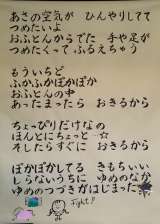 あさの空気が ひんやりしてて
つめたいよ
おふとんからでた 手や足が
つめたくって ふるえちゃう
もういちど
ふかふかぽかぽか
おふとんの中
あったまったら おきるから
ちょっぴりだけなの
ほんとにちょっと ☆
そしたらすぐに おきるから
ぽかぽかしてる きもちいい
しらないうちに ゆめのなか
ゆめのつづきがはじまった
Fight!!